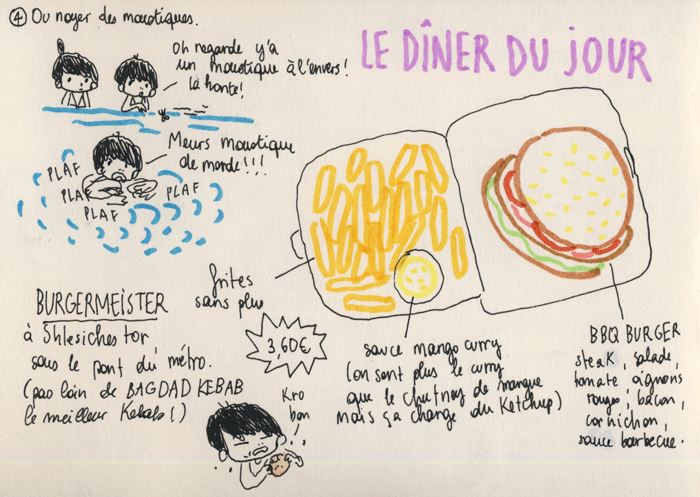 ④ Ou noyer des moustiques.
Oh regarde y'a
un moustique à l'envers!
la honte!
Meurs moustique
de merde!!!
PLAF
PLAF
PLAF
PLAF
LE DÎNER DU JOUR
frites
sans plus
BURGERMEISTER
à Shlesiches tor
sous le pont du métro.
(pas loin de BAGDAD KEBAB
le meilleur Kebab!)
3,60€
Kro
bon
sauce mango curry
(on sent plus le curry
que le chutney de mangue
mais ça change du Ketchup)
BBQ BURGER
steak, salade,
tomate oignons
rouges, bacon,
cornichon,
sauce barbecue.